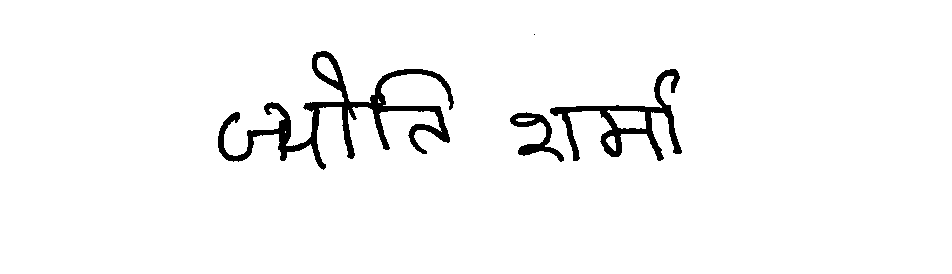 ज्योति शर्मा